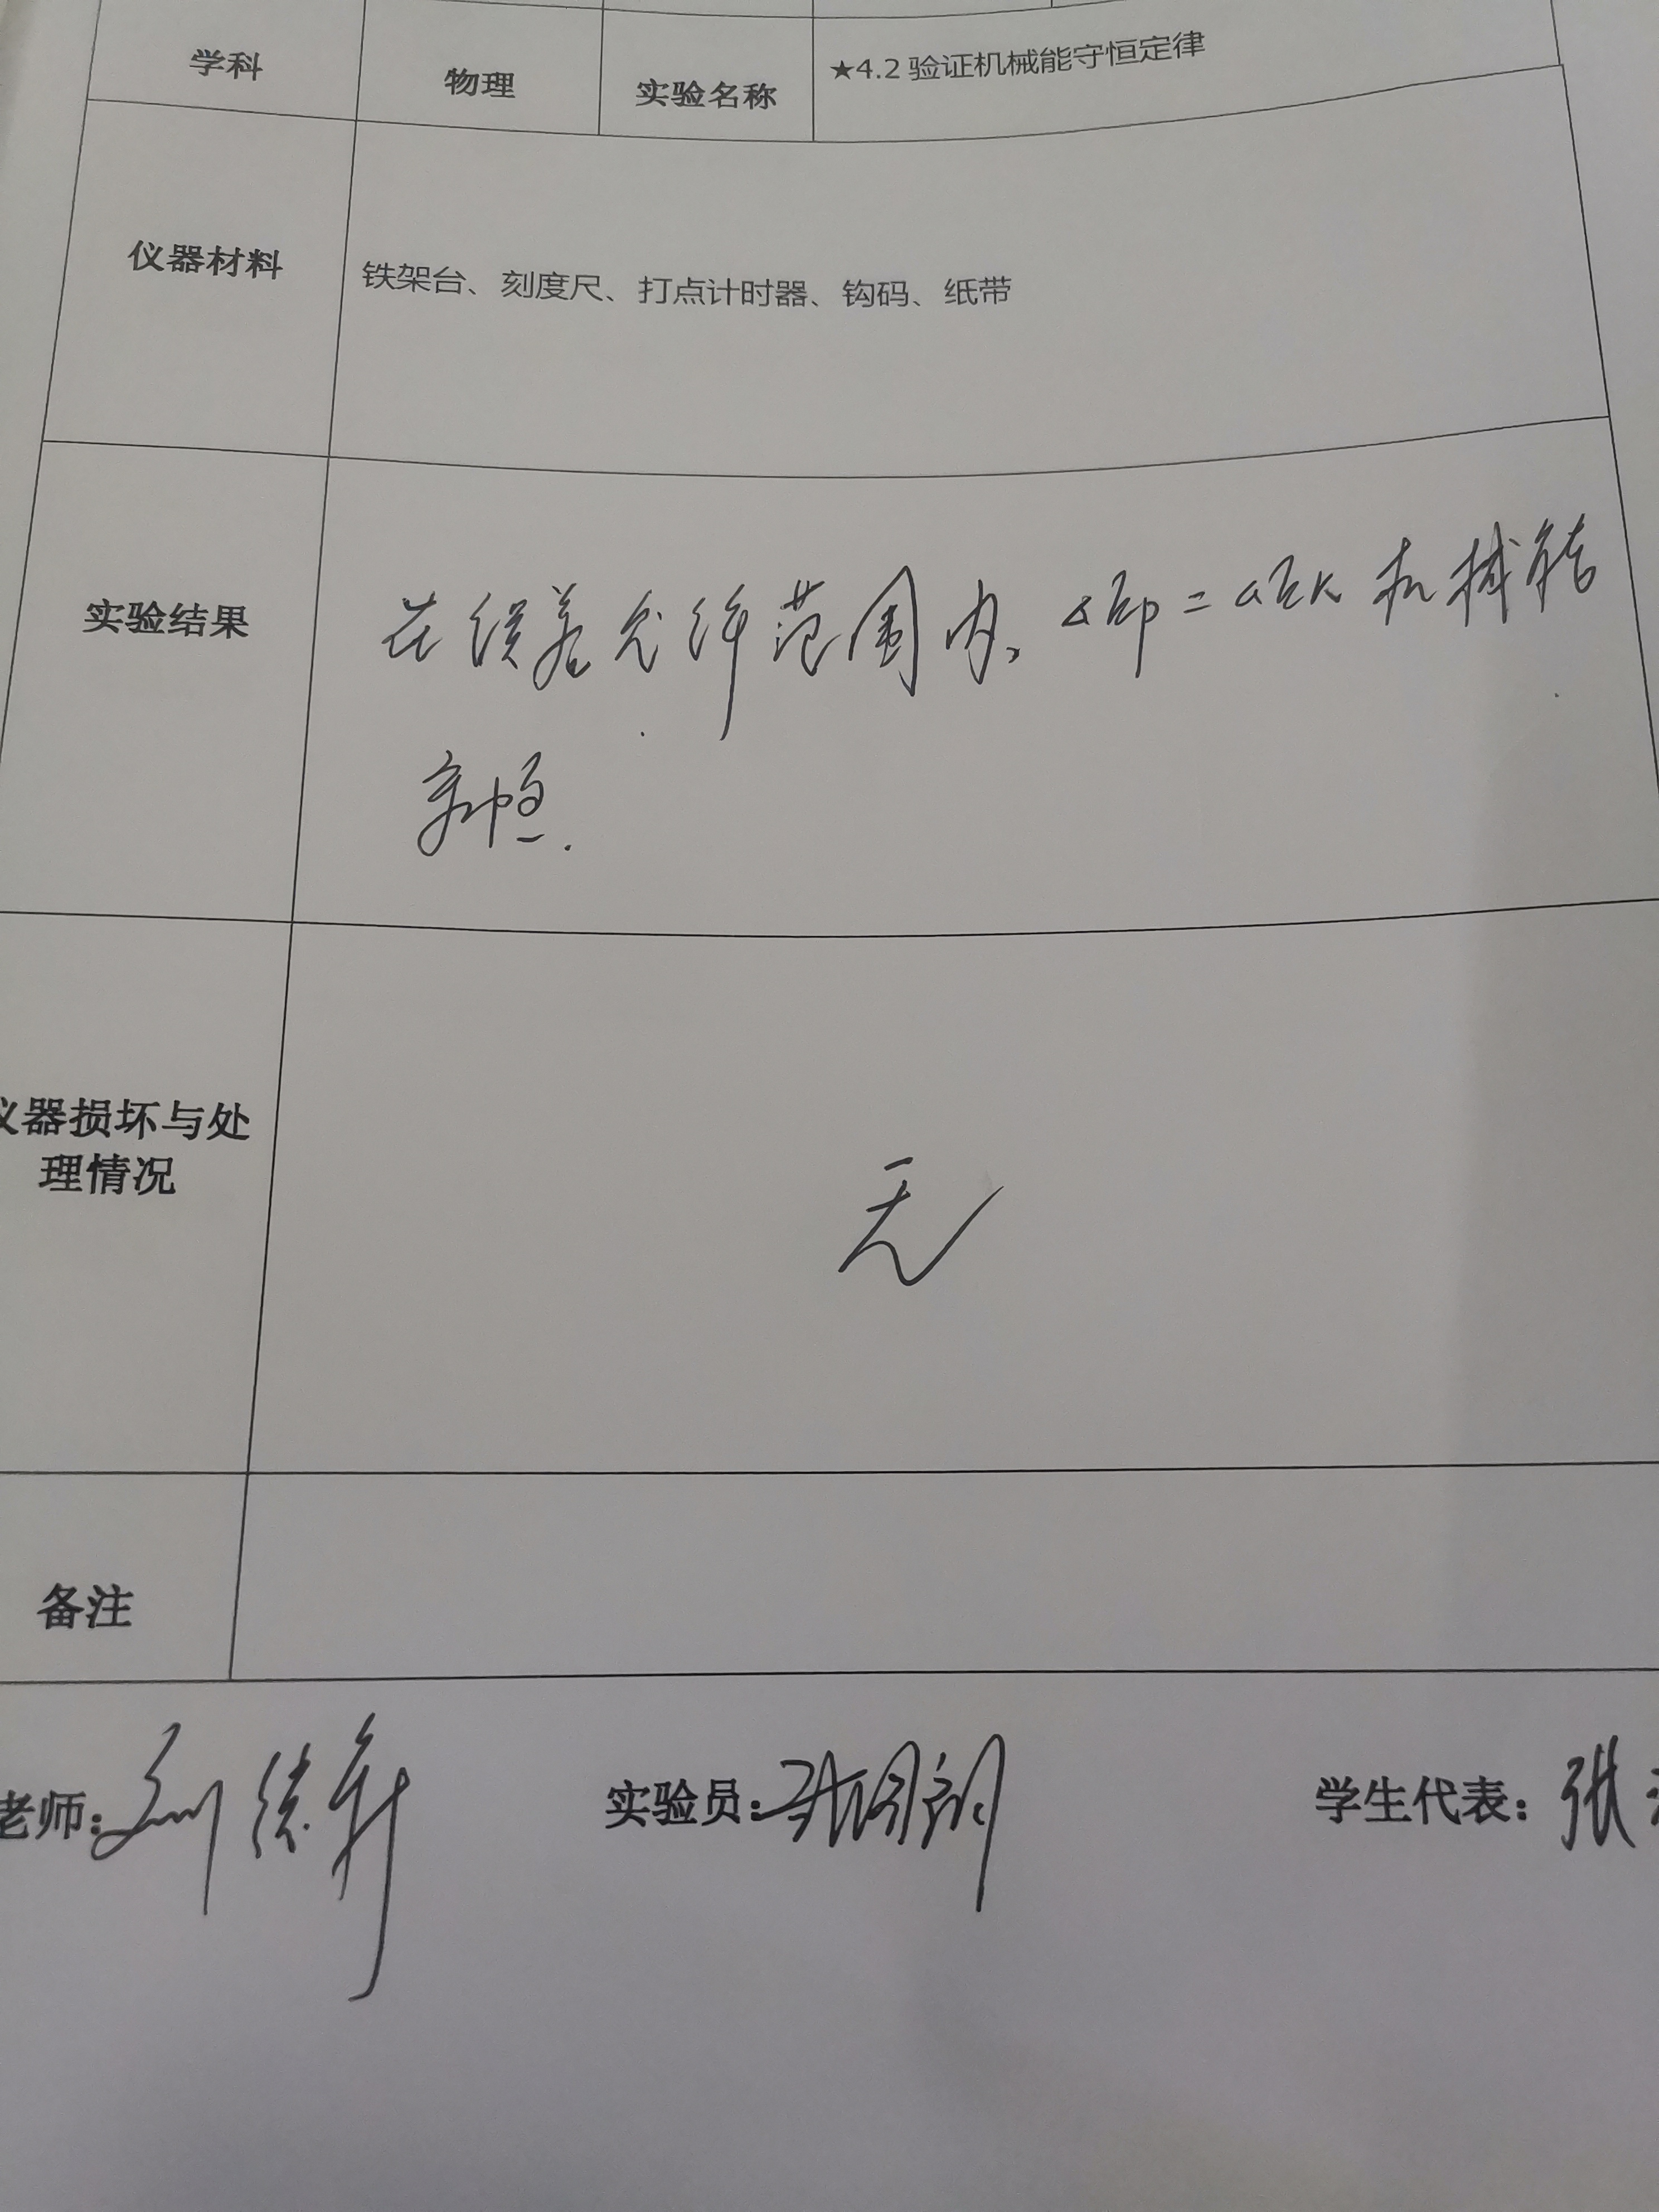 学科 物理 实验名称 ★4.2 验证机械能守恒定律
仪器材料 铁架台、刻度尺、打点计时器、钩码、纸带
实验结果 在误差允许范围内、△Ep=△Ek 机械能
守恒.
仪器损坏与处
理情况 无
备注
老师: 刘 实验员: 学生代表: 张